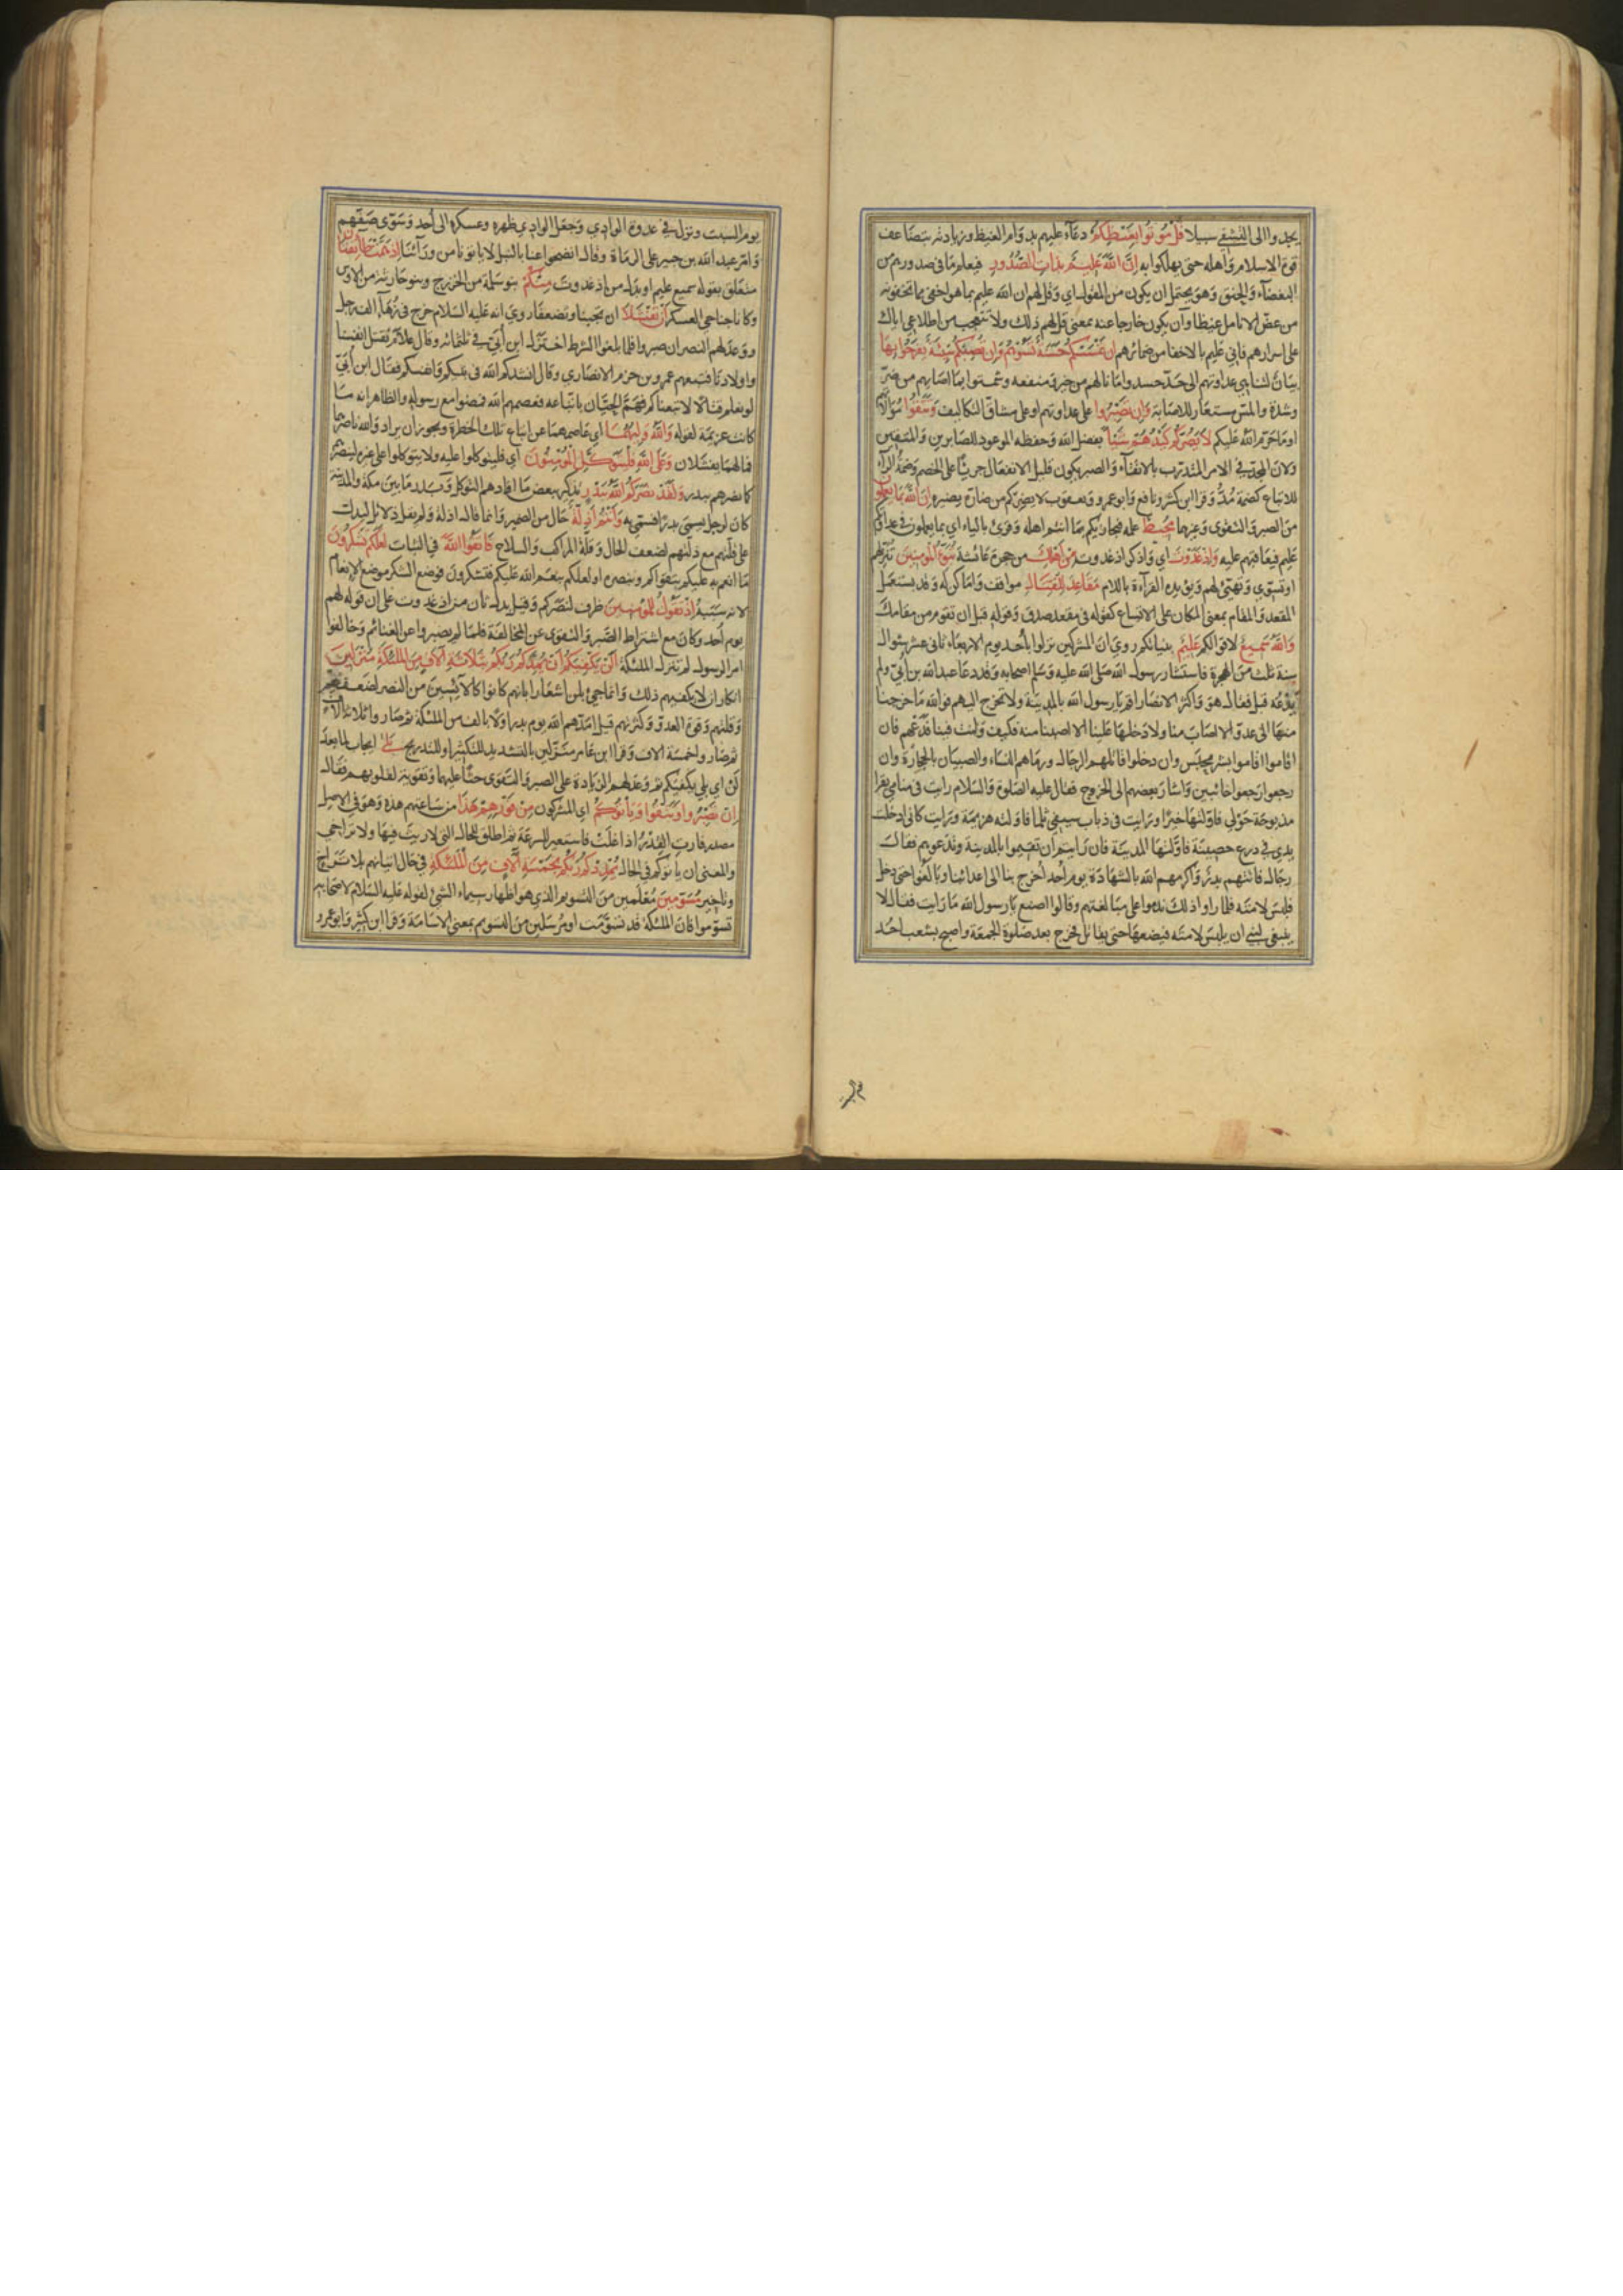 يجدوا الى التشفي سبيلا قُلْ مُوتُوا بِغَيْظِكُمْ دعاء عليهم بدوام الغيظ وزيادته بتضاعف
قوة الاسلام واهله حتى يهلكوا به اِنَّ اللّٰهَ عَلِيمٌ بِذَاتِ الصُّدُورِ فيعلم ما في صدورهم من
البغضاء والحنق وهو يحتمل ان يكون من المقول اي وقل لهم ان الله عليم بما هو اخفى مما تخفونه
من عض الانامل غيظا وان يكون خارجا عنه بمعنى قل لهم ذلك ولا تتعجب من اطلاعي اياك
على اسرارهم فاني عليم بالاخفى من ضمائرهم اِنْ تَمْسَسْكُمْ حَسَنَةٌ تَسُؤْهُمْ وَاِنْ تُصِبْكُمْ سَيِّئَةٌ يَفْرَحُوا بِهَا
بيان لتناهي عداوتهم الى حد حسدوا ما نالهم من خير ومنفعة وشمتوا بما اصابهم من ضر
وشدة والمس مستعار للاصابة وَاِنْ تَصْبِرُوا على عداوتهم او على مشاق التكاليف وَتَتَّقُوا موالاتهم
او ما حرم الله عليكم لَا يَضُرُّكُمْ كَيْدُهُمْ شَيْئًا بفضل الله وحفظه الموعود للصابرين والمتقين
ولان المجد في الامر المتدرب بالاتقاء والصبر يكون قليل الانفعال جريئا على الخصم وضمة الراء
للاتباع كضمة مُدُّ وقرا ابن كثير ونافع وابو عمرو ويعقوب لا يضركم من ضاره يضيره اِنَّ اللّٰهَ بِمَا يَعْمَلُونَ
من الصبر والتقوى وغيرهما مُحِيطٌ علمه فيجازيكم بما انتم اهله وقرئ بالياء اي بما يعملون في عداوتكم
عليم فيعاقبهم عليه وَاِذْ غَدَوْتَ اي واذكر اذ غدوت مِنْ اَهْلِكَ من حجرة عائشة تُبَوِّئُ الْمُؤْمِنِينَ تنزلهم
او تسوي وتهيئ لهم ويؤيده القراءة باللام مَقَاعِدَ لِلْقِتَالِ مواقف واماكن له وقد يستعمل
المقعد والمقام بمعنى المكان على الاتساع كقوله في مقعد صدق وقوله قبل ان تقوم من مقامك
وَاللّٰهُ سَمِيعٌ لاقوالكم عَلِيمٌ بنياتكم روي ان المشركين نزلوا باحد يوم الاربعاء ثاني عشر شوال
سنة ثلث من الهجرة فاستشار رسول الله صلى الله عليه وسلم اصحابه وقد دعا عبد الله بن ابي ولم
يدعه قبل فقال هو واكثر الانصار اقم يا رسول الله بالمدينة ولا تخرج اليهم فوالله ما خرجنا
منها الى عدو الا اصاب منا ولا دخلها علينا الا اصبنا منه فكيف وانت فينا فدعهم فان
اقاموا اقاموا بشر محبس وان دخلوا قاتلهم الرجال ورماهم النساء والصبيان بالحجارة وان
رجعوا رجعوا خائبين واشار بعضهم الى الخروج فقال عليه الصلوة والسلام رايت في منامي بقرا
مذبوحة حولي فاولتها خيرا ورايت في ذباب سيفي ثلما فاولته هزيمة ورايت كاني ادخلت
يدي في درع حصينة فاولتها المدينة فان رايتم ان تقيموا بالمدينة وتدعوهم فقال
رجال فاتتهم بدر واكرمهم الله بالشهادة يوم احد اخرج بنا الى اعدائنا وبالغوا حتى دخل
فلبس لامته فلما راوا ذلك ندموا على مبالغتهم وقالوا اصنع يا رسول الله ما رايت فقال لا
ينبغي لنبي ان يلبس لامته فيضعها حتى يقاتل فخرج بعد صلوة الجمعة واصبح بشعب احد
يوم السبت ونزل في عدوة الوادي وجعل الوادي ظهره وعسكره الى احد وسوى صفهم
وامر عبد الله بن جبير على الرماة وقال انضحوا عنا بالنبل لا ياتونا من ورائنا اِذْ هَمَّتْ طَائِفَتَانِ
متعلق بقوله سميع عليم او بدل من اذ غدوت مِنْكُمْ بنو سلمة من الخزرج وبنو حارثة من الاوس
وكانا جناحي العسكر اَنْ تَفْشَلَا ان تجبنا وتضعفا روي انه عليه السلام خرج في زهاء الف رجل
ووعد لهم النصر ان صبروا فلما بلغوا الشرط اختزل ابن ابي في ثلثمائة وقال علام نقتل انفسنا
واولادنا فتبعهم عمرو بن حزم الانصاري وقال انشدكم الله في نبيكم وانفسكم فقال ابن ابي
لو نعلم قتالا لاتبعناكم فهم الحيان باتباعه فعصمهم الله فمضوا مع رسوله والظاهر انه ما
كانت عزيمة لقوله وَاللّٰهُ وَلِيُّهُمَا اي عاصمهما عن اتباع تلك الخطرة ويجوز ان يراد والله ناصرهما
فما لهما يفشلان وَعَلَى اللّٰهِ فَلْيَتَوَكَّلِ الْمُؤْمِنُونَ اي فليتوكلوا عليه ولا يتوكلوا على غيره لينصرهم
كما نصرهم ببدر وَلَقَدْ نَصَرَكُمُ اللّٰهُ بِبَدْرٍ تذكير ببعض ما افادهم التوكل وبدر ما بين مكة والمدينة
كان لرجل يسمى بدرا فسمي به وَاَنْتُمْ اَذِلَّةٌ حال من الضمير وانما قال اذلة ولم يقل ذلائل ليدل
على قلتهم مع ذلتهم لضعف الحال وقلة المراكب والسلاح فَاتَّقُوا اللّٰهَ في الثبات لَعَلَّكُمْ تَشْكُرُونَ
ما انعم به عليكم بتقواكم ونصره او لعلكم ينعم الله عليكم فتشكرون فوضع الشكر موضع الانعام
لانه سببه اِذْ تَقُولُ لِلْمُؤْمِنِينَ ظرف لنصركم وقيل بدل ثان من اذ غدوت على ان قوله لهم
يوم احد وكان مع اشتراط الصبر والتقوى عن المخالفة فلما لم يصبروا عن الغنائم وخالفوا
امر الرسول لم تنزل الملئكة اَلَنْ يَكْفِيَكُمْ اَنْ يُمِدَّكُمْ رَبُّكُمْ بِثَلٰثَةِ اٰلَافٍ مِنَ الْمَلٰئِكَةِ مُنْزَلِينَ
انكار ان لا يكفيهم ذلك وانما جيء بلن اشعارا بانهم كانوا كالآيسين من النصر لضعفهم
وقلتهم وقوة العدو وكثرتهم قيل امدهم الله يوم بدر اولا بالف من الملئكة ثم صاروا ثلاثة آلاف
ثم صاروا خمسة آلاف وقرا ابن عامر منزلين بالتشديد للتكثير او للتدريج بَلٰى ايجاب لما بعد
لن اي بلى يكفيكم ثم وعد لهم الزيادة على الصبر والتقوى حثا عليهما وتقوية لقلوبهم فقال
اِنْ تَصْبِرُوا وَتَتَّقُوا وَيَاْتُوكُمْ اي المشركون مِنْ فَوْرِهِمْ هٰذَا من ساعتهم هذه وهو في الاصل
مصدر فارت القدر اذا غلت فاستعير للسرعة ثم اطلق للحال التي لا ريث فيها ولا تراخي
والمعنى ان ياتوكم في الحال يُمْدِدْكُمْ رَبُّكُمْ بِخَمْسَةِ اٰلَافٍ مِنَ الْمَلٰئِكَةِ في حال اتيانهم بلا تراخ
وتاخير مُسَوِّمِينَ معلمين من التسويم الذي هو اظهار سيماء الشيء لقوله عليه السلام لاصحابه
تسوموا فان الملئكة قد تسومت او مرسلين من التسويم بمعنى الاسامة وقرا ابن كثير وابو عمرو